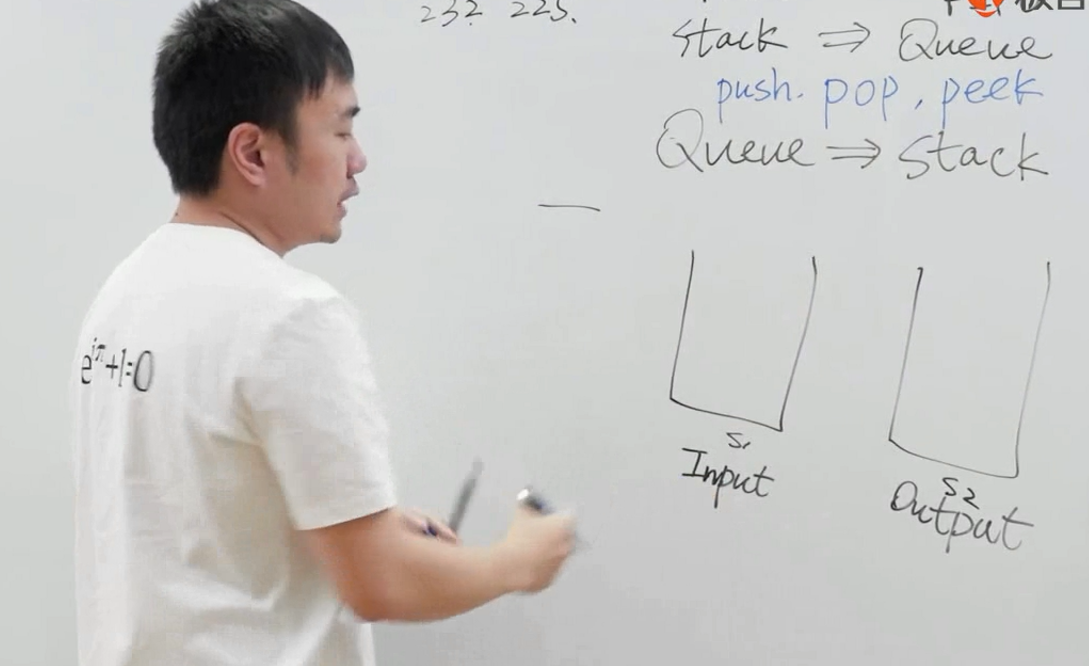 232 225.
Stack ⇒ Queue
push. pop, peek
Queue ⇒ Stack
S1
Input
S2
Output
e^iπ+1=0